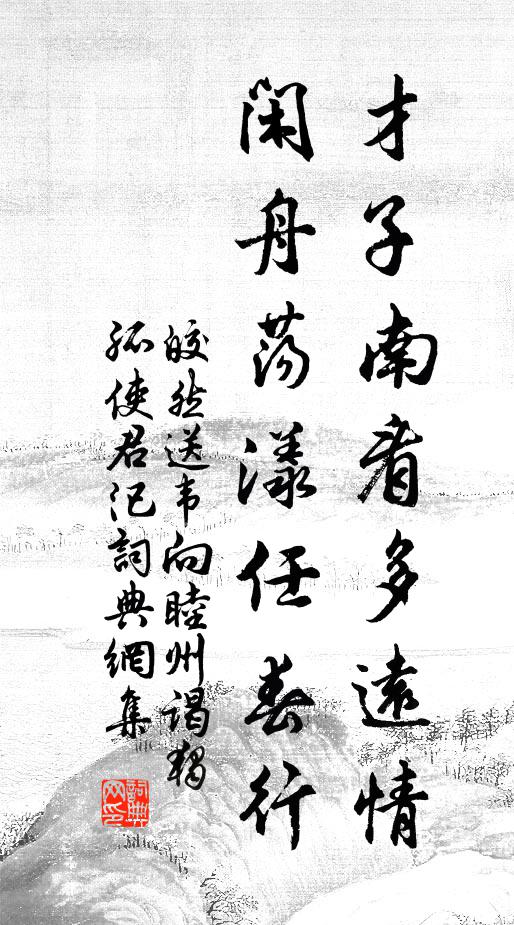 才子南看多遠情
閑舟蕩漾任春行
皎然送韦向睦州谒独
孤使君汜詞典網集
詞典网印